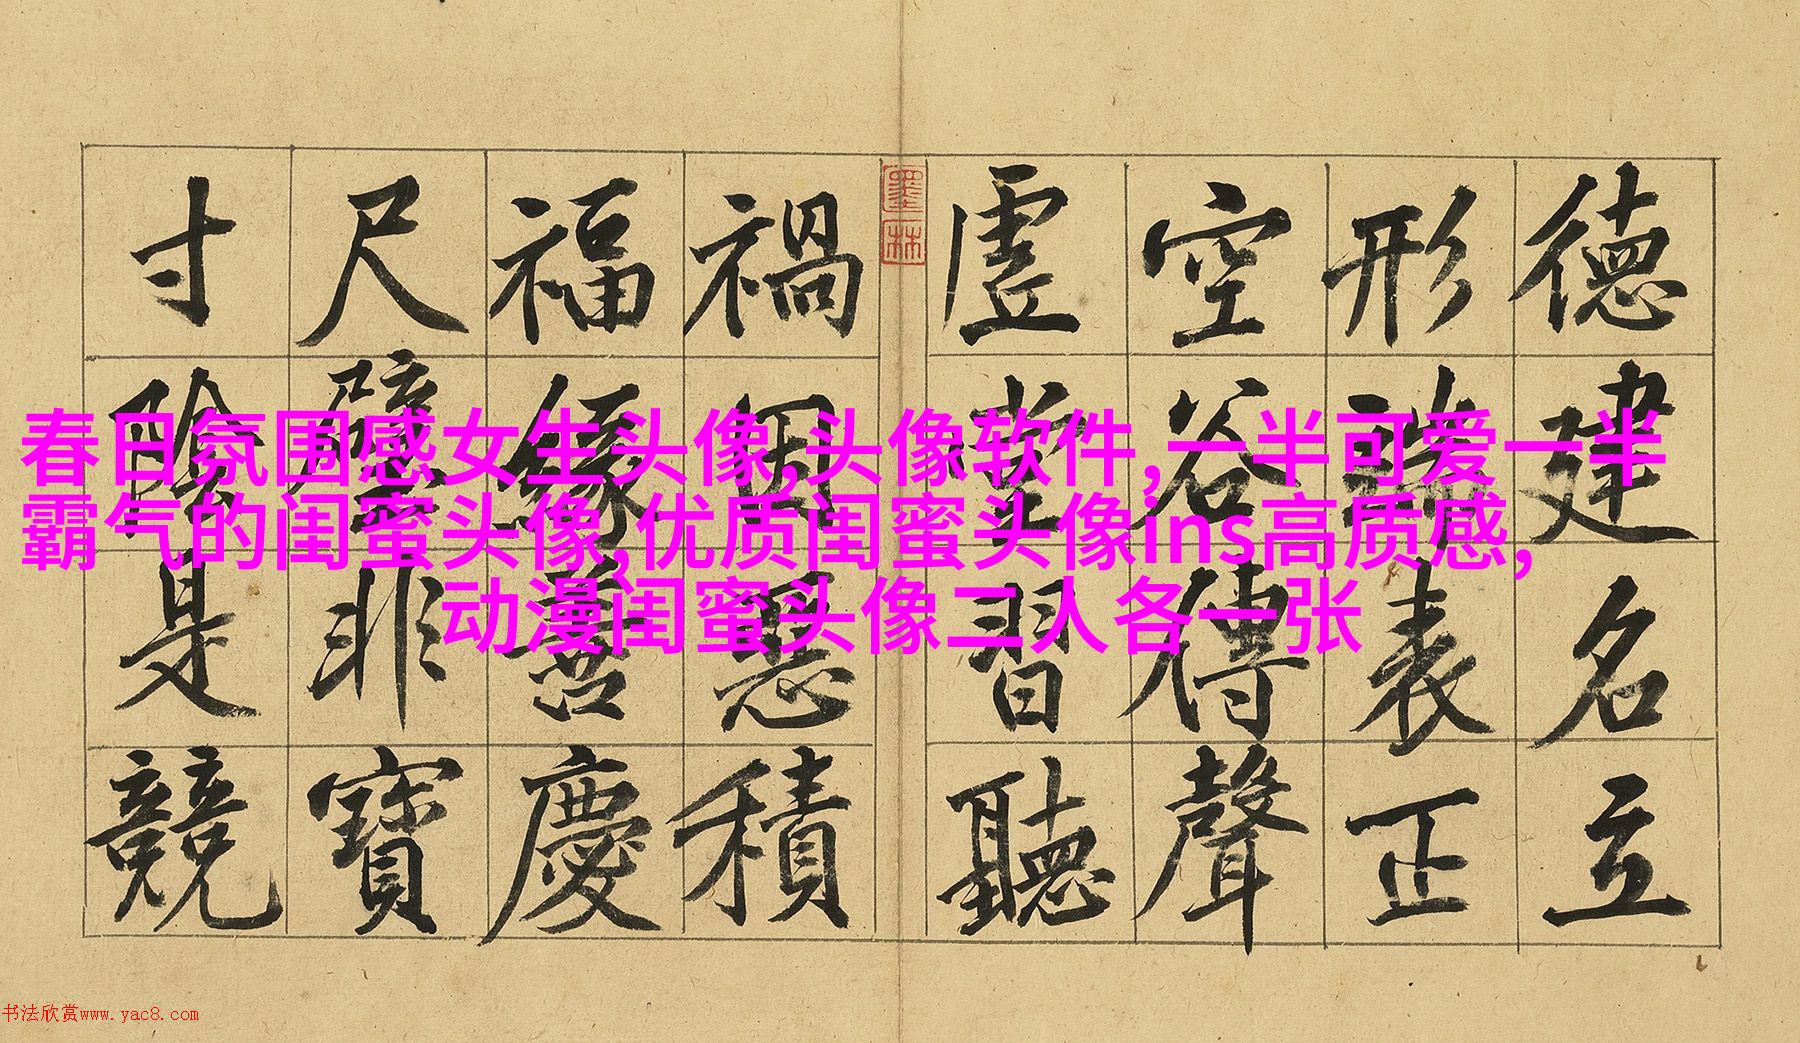 德建名立
形端表正
空谷傳聲
虛堂習聽
墨林
禍因惡積
福緣善慶
尺璧非寶
寸陰是競
春日氛围感女生头像,头像软件,一半可爱一半
霸气的闺蜜头像,优质闺蜜头像ins高质感,
动漫闺蜜头像二人各一张
书法欣赏www.yac8.com